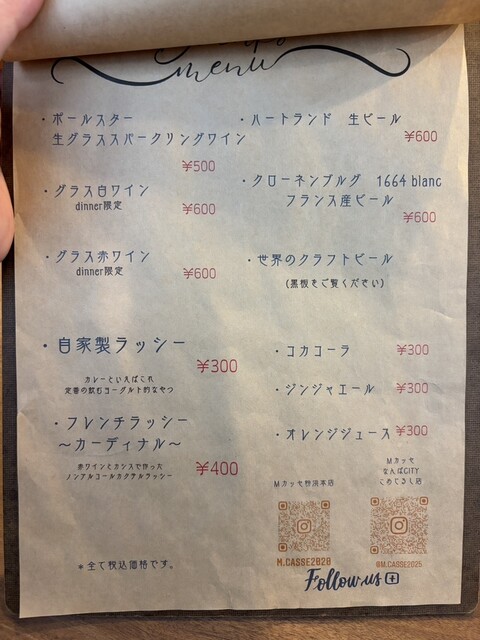 menu
・ポールスター
生グラススパークリングワイン
¥500
・グラス白ワイン
dinner限定
¥600
・グラス赤ワイン
dinner限定
¥600
・ハートランド 生ビール
¥600
・クローネンブルグ 1664 blanc
フランス産ビール
¥600
・世界のクラフトビール
(黒板をご覧ください)
・自家製ラッシー
¥300
カレーといえばこれ
定番の飲むヨーグルト的なやつ
・フレンチラッシー
～カーディナル～
赤ワインとカシスで作った
ノンアルコールカクテルラッシー
¥400
・コカコーラ ¥300
・ジンジャエール ¥300
・オレンジジュース ¥300
Mカッセ
なんばCITY
こめじるし店
M.CASSE2020
@M.CASSE2025
Follow us
＊全て税込価格です。